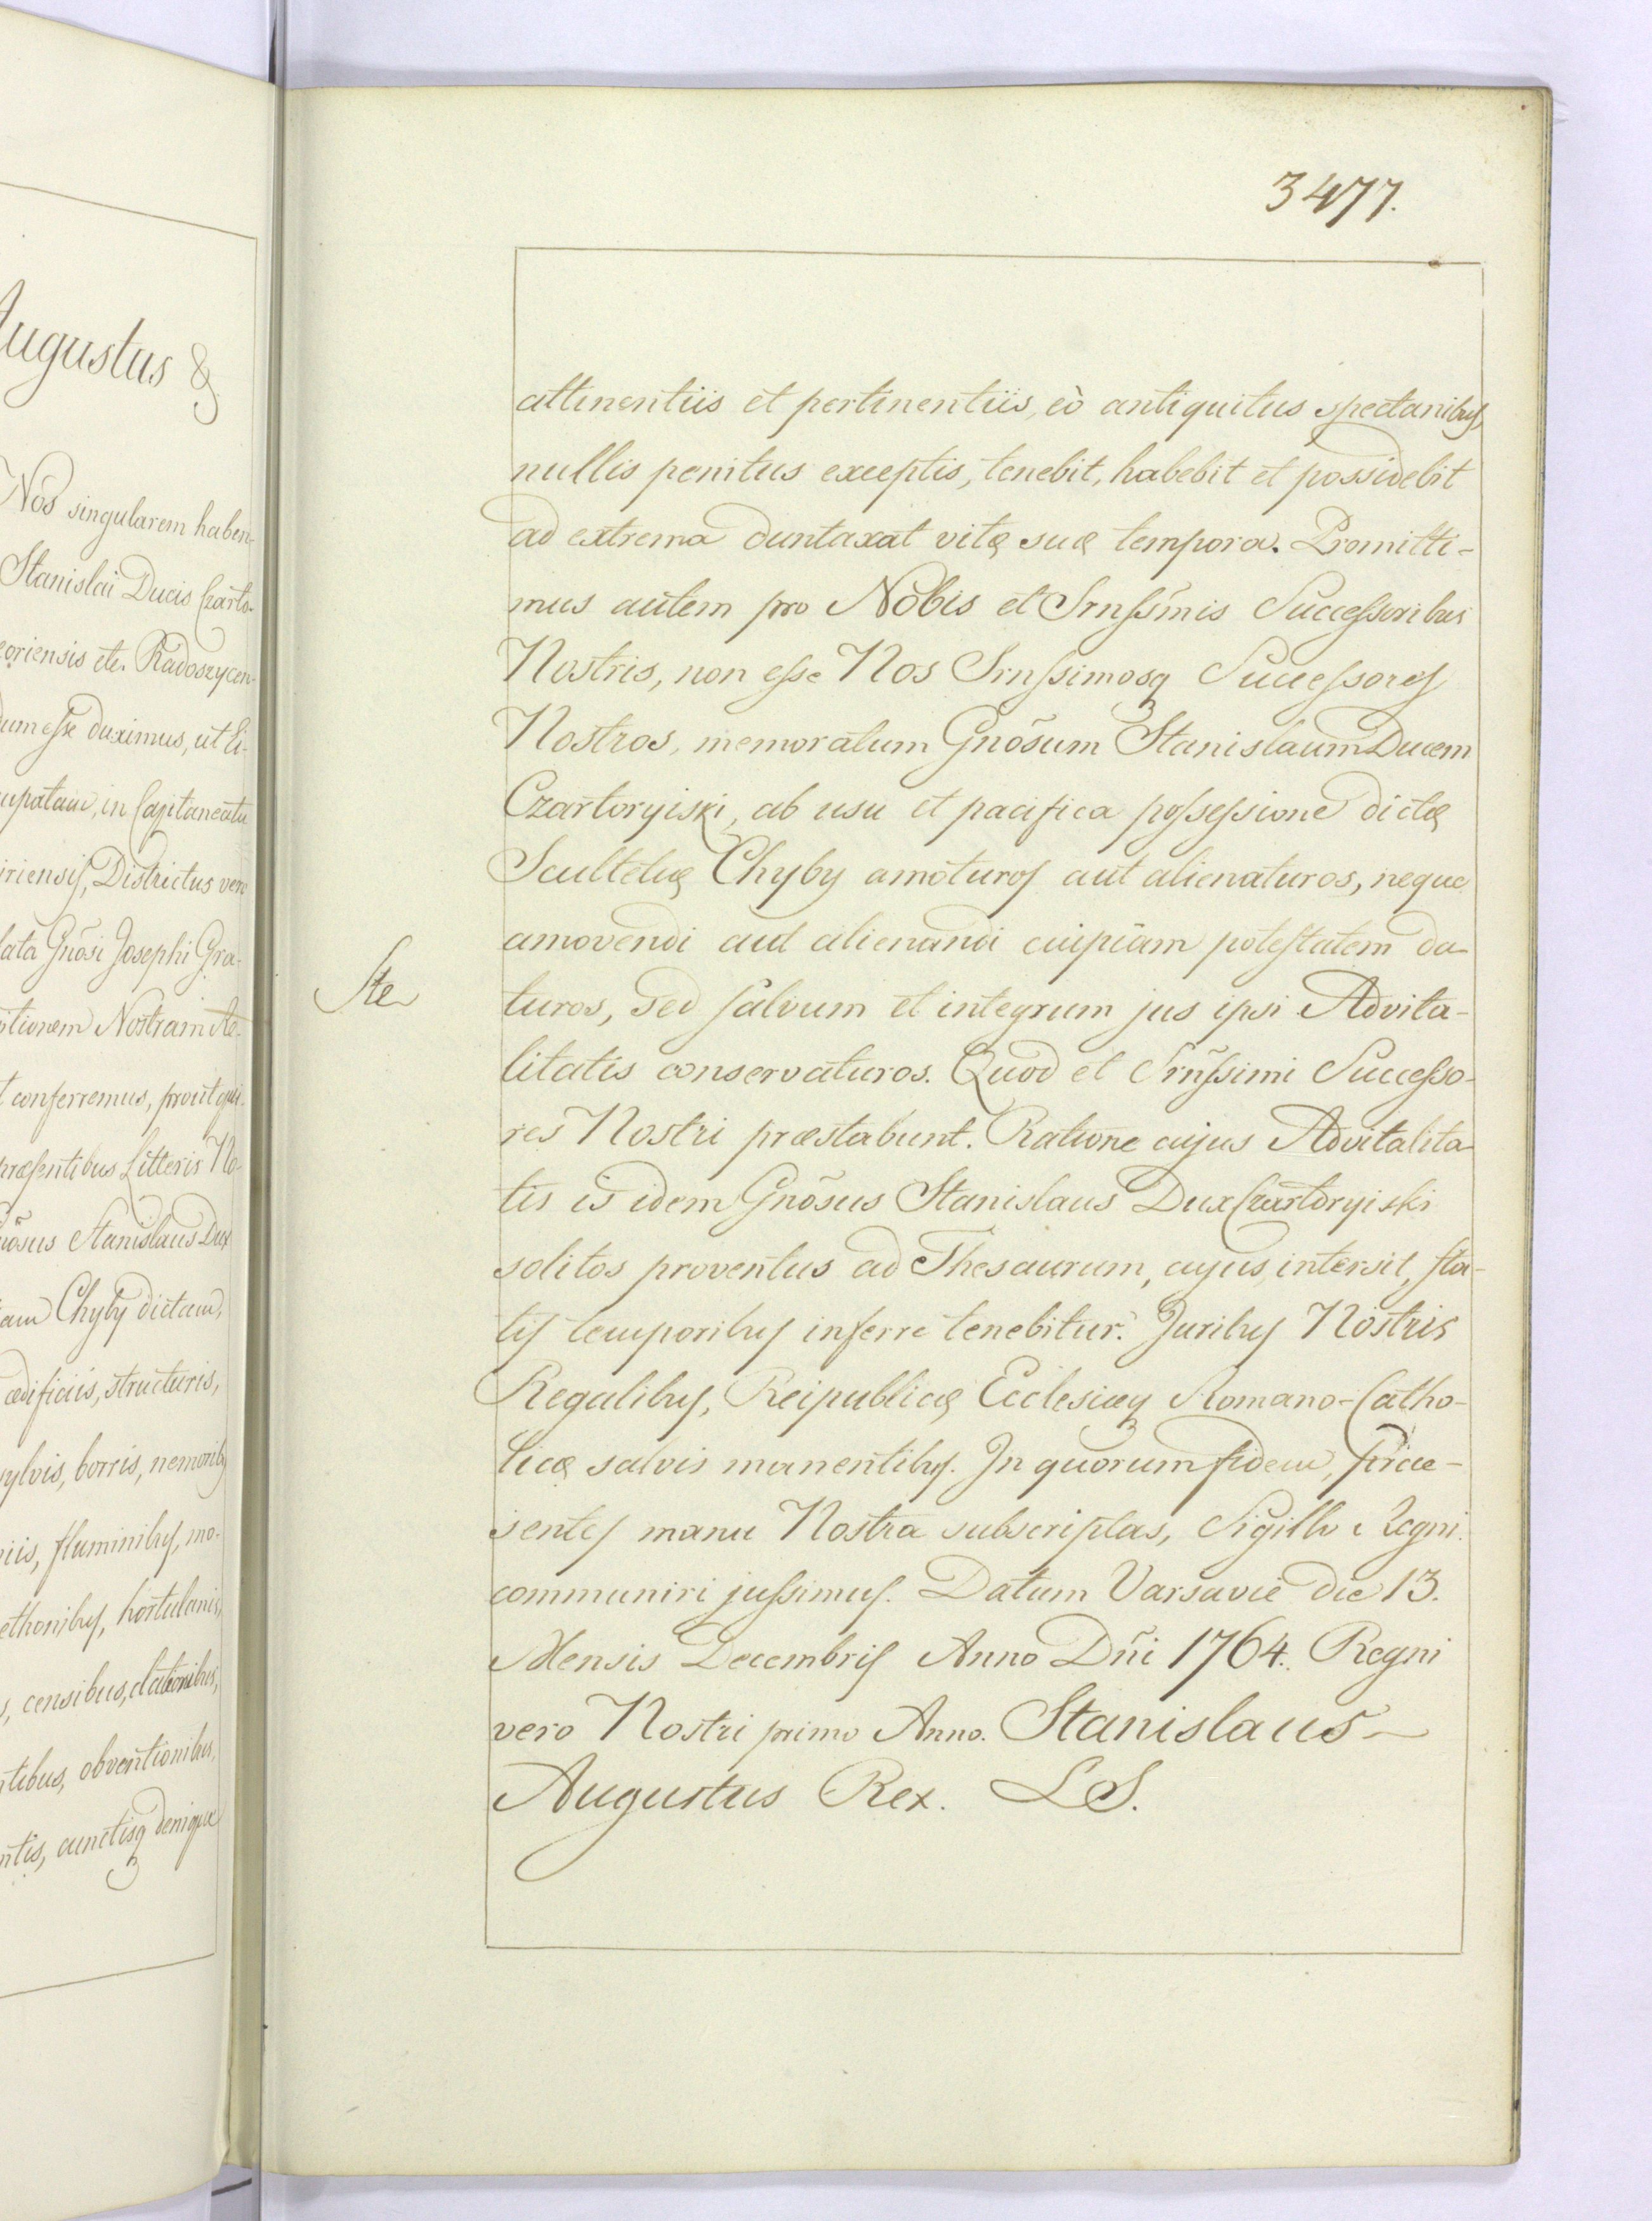 Augustus &
Nos singularem haben-
Stanislai Ducis Czarto-
oriensis etc. Radoszycen-
dum esse duximus, ut Ei-
cupatam, in Capitaneatu
iriensis, Districtus vero
lata Gnõsi Josephi Gra-
itionem Nostram Ac-
t conferremus, prout qui-
præsentibus Litteris No-
nõsus Stanislaus Dux
iam Chyby dictam,
ædificiis, structuris,
sylvis, borris, nemoribus
niis, fluminibus, mo-
ethonibus, hortulanis,
s, censibus, dationibus,
ntibus, obventionibus,
ntis, cunctisq denique
3477.
attinentiis et pertinentiis, eò antiquitus spectanibus,
nullis penitus exceptis, tenebit, habebit et possidebit
ad extrema duntaxat vitæ suæ tempora. Promitti-
mus autem pro Nobis et Srnssimis Successoribus
Nostris, non esse Nos Srnssimosq Successores
Nostros, memoratum Gnõsum Stanislaum Ducem
Czartoryiski, ab usu et pacifica possessione dictæ
Scultetiæ Chyby amoturos aut alienaturos, neque
amovendi aut alienandi cuipiam potestatem da-
Ste
turos, sed salvum et integrum jus ipsi Advita-
litatis conservaturos. Quod et Srnssimi Successo-
res Nostri præstabunt. Ratione cujus Advitalita-
tis is idem Gnõsus Stanislaus Dux Czartoryiski
solitos proventus ad Thesaurum, cujus intersit, sta-
tis temporibus inferre tenebitur. Juribus Nostris
Regalibus, Reipublicæ Ecclesiæq Romano-Catho-
licæ salvis manentibus. In quorum fidem, præ-
sentes manu Nostra subscriptas, Sigillo Regni
communiri jussimus. Datum Varsaviæ die 13.
Mensis Decembris Anno Dñi 1764. Regni
vero Nostri primo Anno. Stanislaus
Augustus Rex. LS.